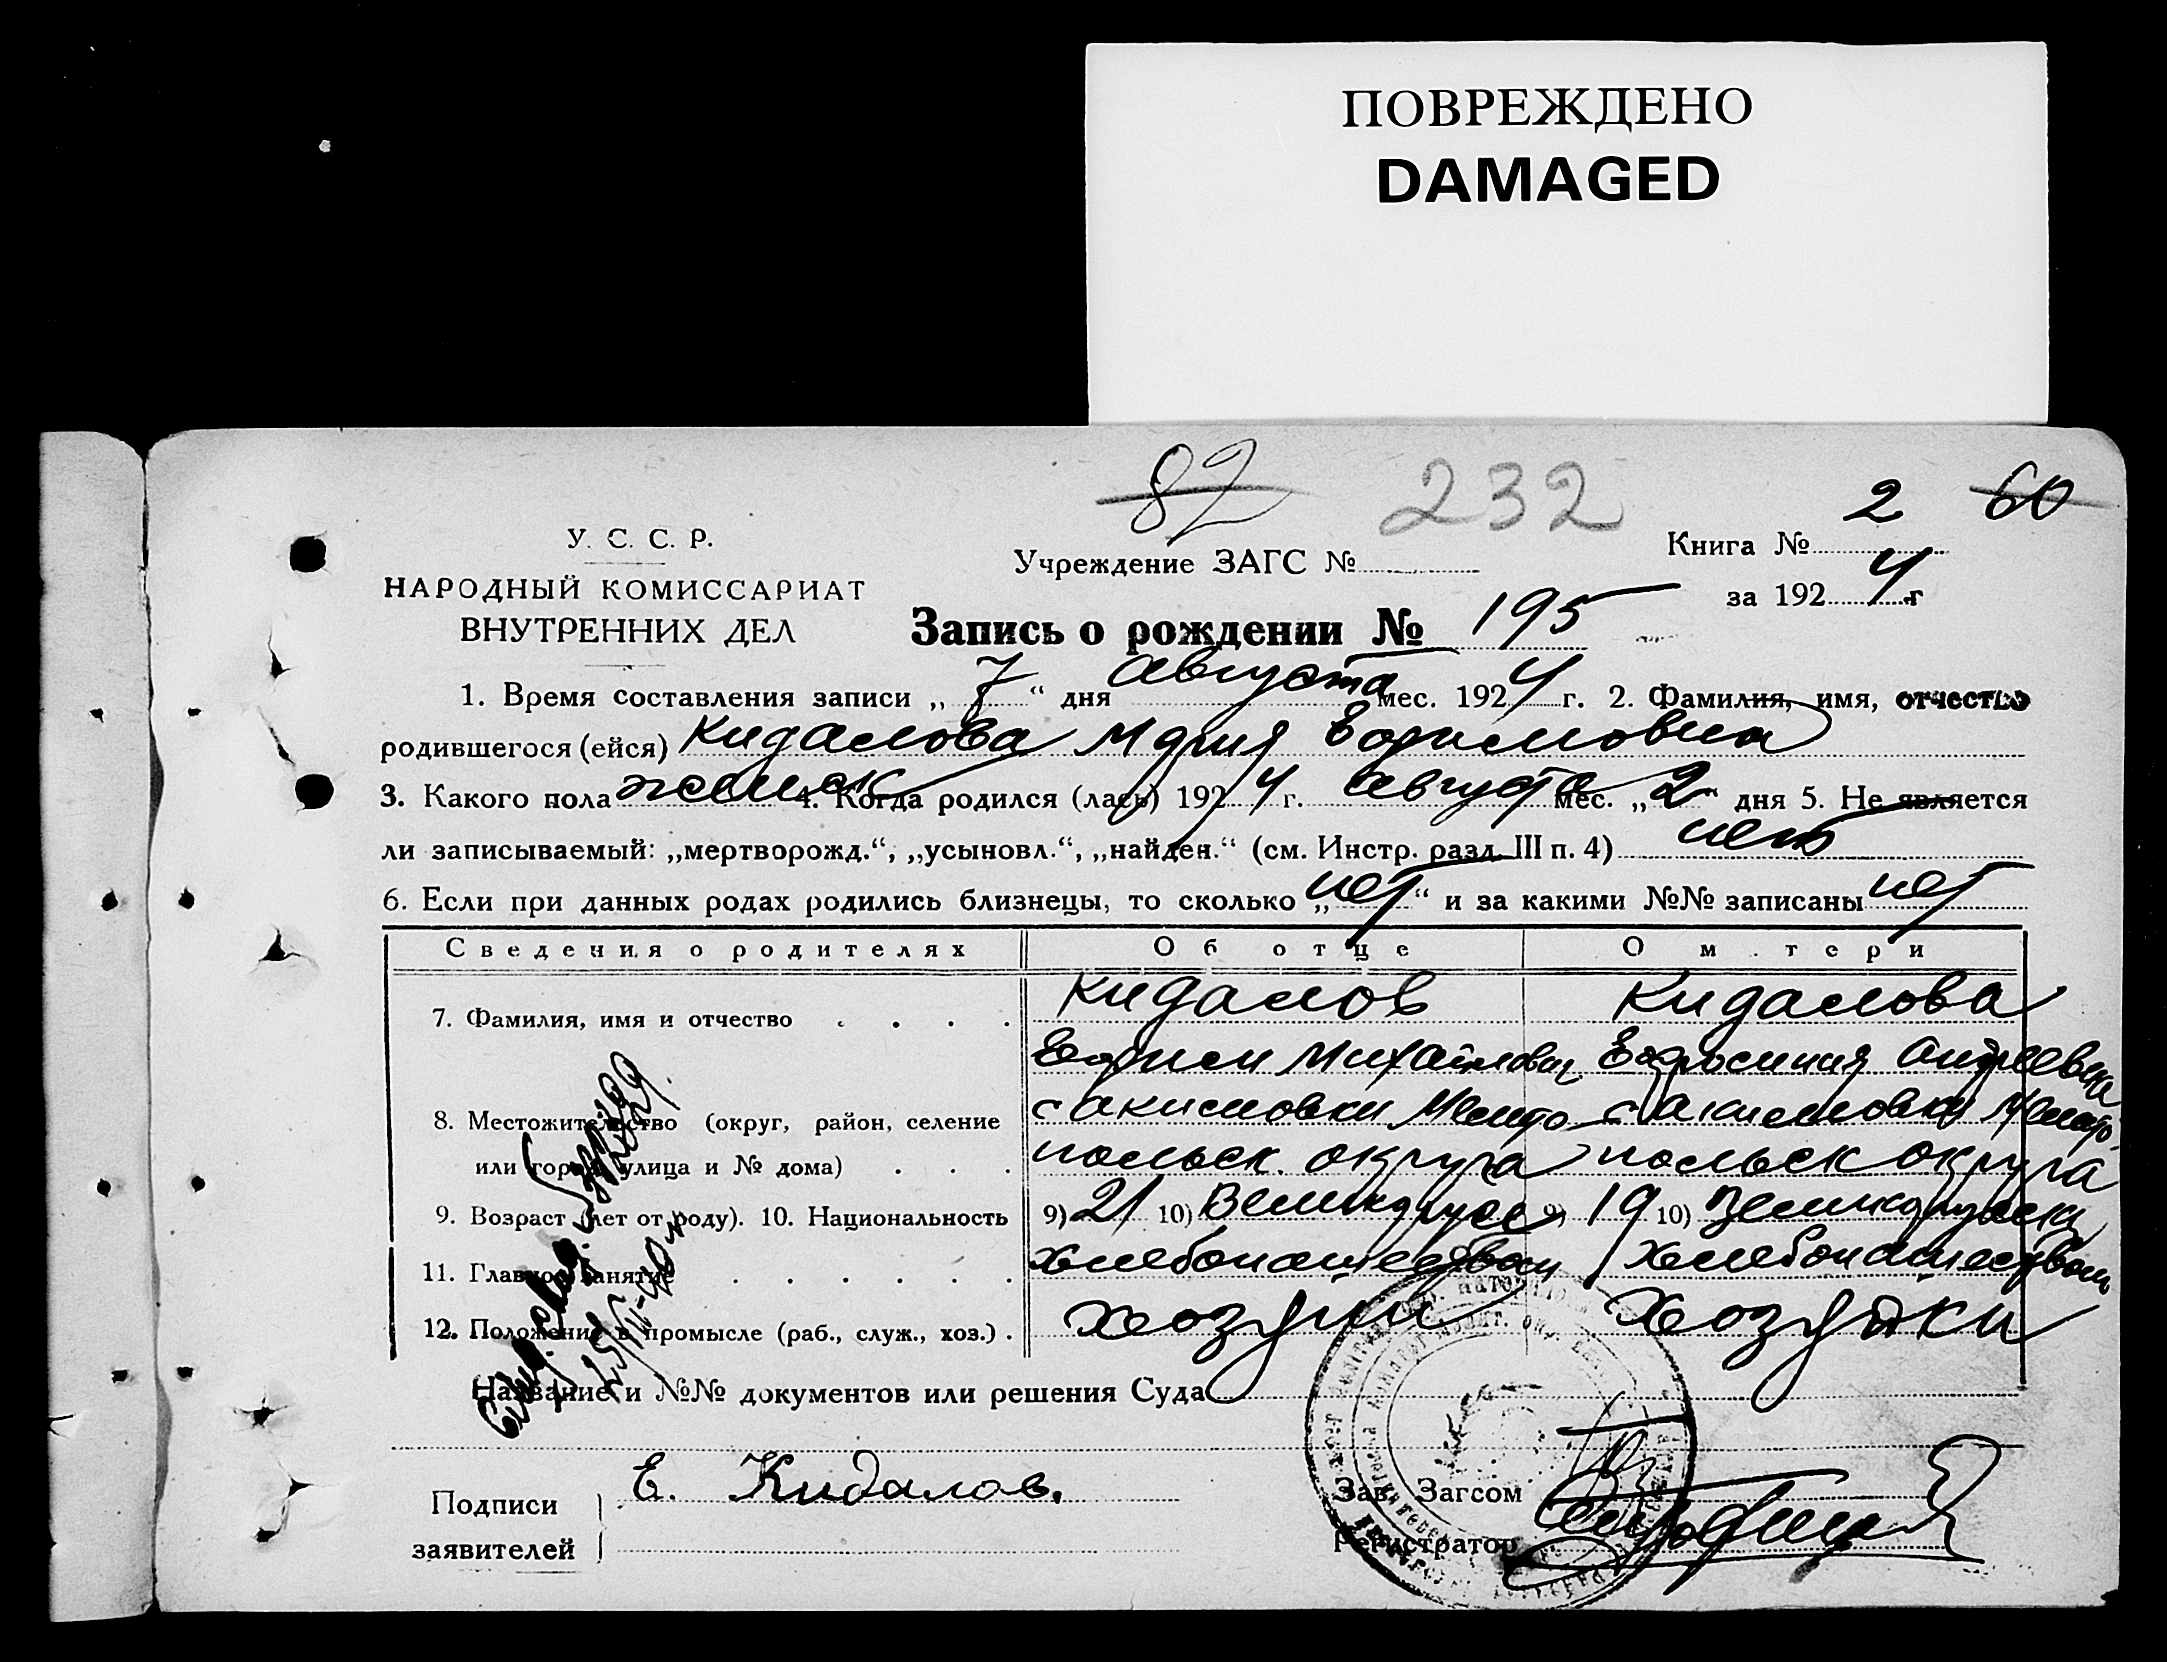 ПОВРЕЖДЕНО
DAMAGED
82 232 2 60
У. С. С. Р.
НАРОДНЫЙ КОМИССАРИАТ
ВНУТРЕННИХ ДЕЛ
Учреждение ЗАГС №
Книга №
за 1924 г
Запись о рождении № 195
1. Время составления записи „7“ дня августа мес. 1924 г. 2. Фамилия, имя, отчество
родившегося (ейся) Кидалова Мария Ефимовна
3. Какого пола женск 4. Когда родился (лась) 1924 г. августа мес. „2“ дня 5. Не является
ли записываемый: „мертворожд.“, „усыновл.“, „найден.“ (см. Инстр. разд. III п. 4) нет
6. Если при данных родах родились близнецы, то сколько „нет“ и за какими №№ записаны нет
Сведения о родителях Об отце О м.тери
7. Фамилия, имя и отчество Кидалов Кидалова
Ефим Михайлович Ефросиния Андреевна
8. Местожительство (округ, район, селение с Акимовки Мелито с Акимовки Мелито
или город, улица и № дома) польск. округа польск округа
9. Возраст (лет от роду). 10. Национальность 9) 21 10) Великорусс 9) 19 10) Великорусск
11. Главное занятие хлебопашеством хлебопашеством
12. Положение в промысле (раб., служ., хоз.) хозяин хозяйки
Название и №№ документов или решения Суда
Подписи
заявителей
Е. Кидалов.
Зав. Загсом
Регистратор